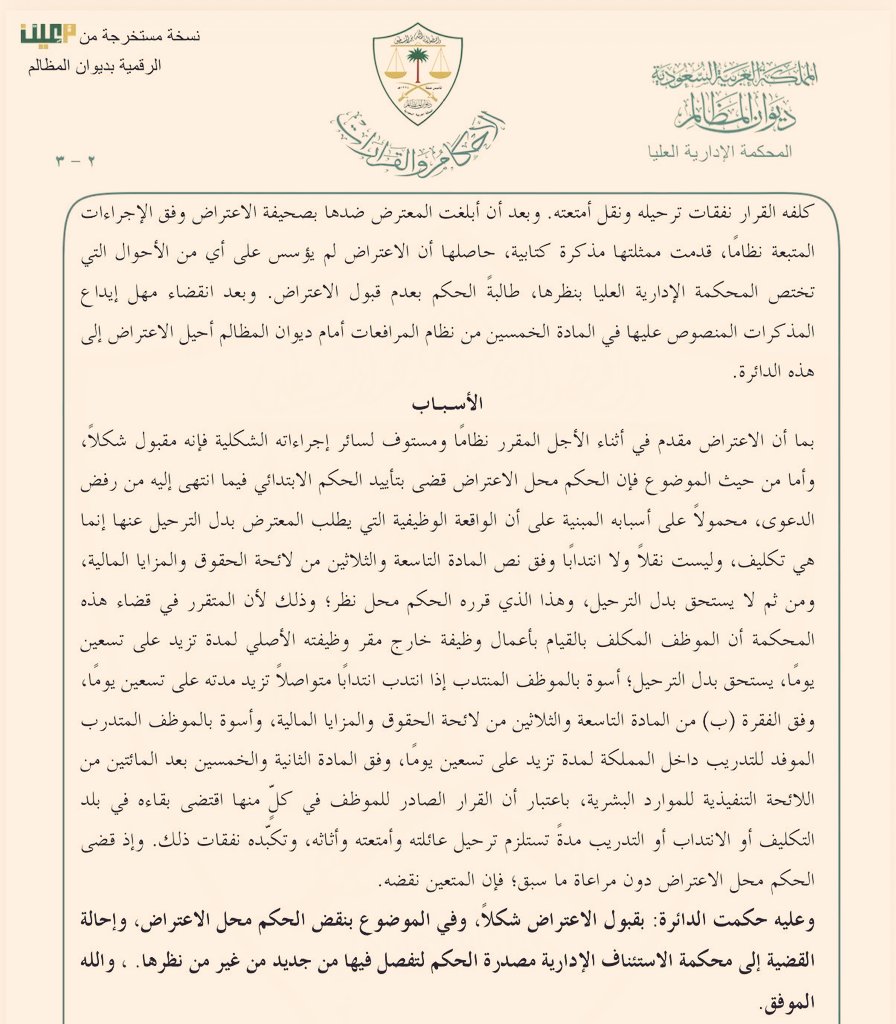 نسخة مستخرجة من معين
الرقمية بديوان المظالم
المملكة العربية السعودية
ديوان المظالم
المحكمة الإدارية العليا
الأحكام والقرارات
٢ - ٣
كلفه القرار نفقات ترحيله ونقل أمتعته. وبعد أن أبلغت المعترض ضدها بصحيفة الاعتراض وفق الإجراءات
المتبعة نظامًا، قدمت ممثلتها مذكرة كتابية، حاصلها أن الاعتراض لم يؤسس على أي من الأحوال التي
تختص المحكمة الإدارية العليا بنظرها، طالبةً الحكم بعدم قبول الاعتراض. وبعد انقضاء مهل إيداع
المذكرات المنصوص عليها في المادة الخمسين من نظام المرافعات أمام ديوان المظالم أحيل الاعتراض إلى
هذه الدائرة.
الأسباب
بما أن الاعتراض مقدم في أثناء الأجل المقرر نظامًا ومستوف لسائر إجراءاته الشكلية فإنه مقبول شكلاً،
وأما من حيث الموضوع فإن الحكم محل الاعتراض قضى بتأييد الحكم الابتدائي فيما انتهى إليه من رفض
الدعوى، محمولاً على أسبابه المبنية على أن الواقعة الوظيفية التي يطلب المعترض بدل الترحيل عنها إنما
هي تكليف، وليست نقلاً ولا انتدابًا وفق نص المادة التاسعة والثلاثين من لائحة الحقوق والمزايا المالية،
ومن ثم لا يستحق بدل الترحيل، وهذا الذي قرره الحكم محل نظر؛ وذلك لأن المتقرر في قضاء هذه
المحكمة أن الموظف المكلف بالقيام بأعمال وظيفة خارج مقر وظيفته الأصلي لمدة تزيد على تسعين
يومًا، يستحق بدل الترحيل؛ أسوة بالموظف المنتدب إذا انتدب انتدابًا متواصلاً تزيد مدته على تسعين يومًا،
وفق الفقرة (ب) من المادة التاسعة والثلاثين من لائحة الحقوق والمزايا المالية، وأسوة بالموظف المتدرب
الموفد للتدريب داخل المملكة لمدة تزيد على تسعين يومًا، وفق المادة الثانية والخمسين بعد المائتين من
اللائحة التنفيذية للموارد البشرية، باعتبار أن القرار الصادر للموظف في كلٍّ منها اقتضى بقاءه في بلد
التكليف أو الانتداب أو التدريب مدةً تستلزم ترحيل عائلته وأمتعته وأثاثه، وتكبّده نفقات ذلك. وإذ قضى
الحكم محل الاعتراض دون مراعاة ما سبق؛ فإن المتعين نقضه.
وعليه حكمت الدائرة: بقبول الاعتراض شكلاً، وفي الموضوع بنقض الحكم محل الاعتراض، وإحالة
القضية إلى محكمة الاستئناف الإدارية مصدرة الحكم لتفصل فيها من جديد من غير من نظرها. ، والله
الموفق.